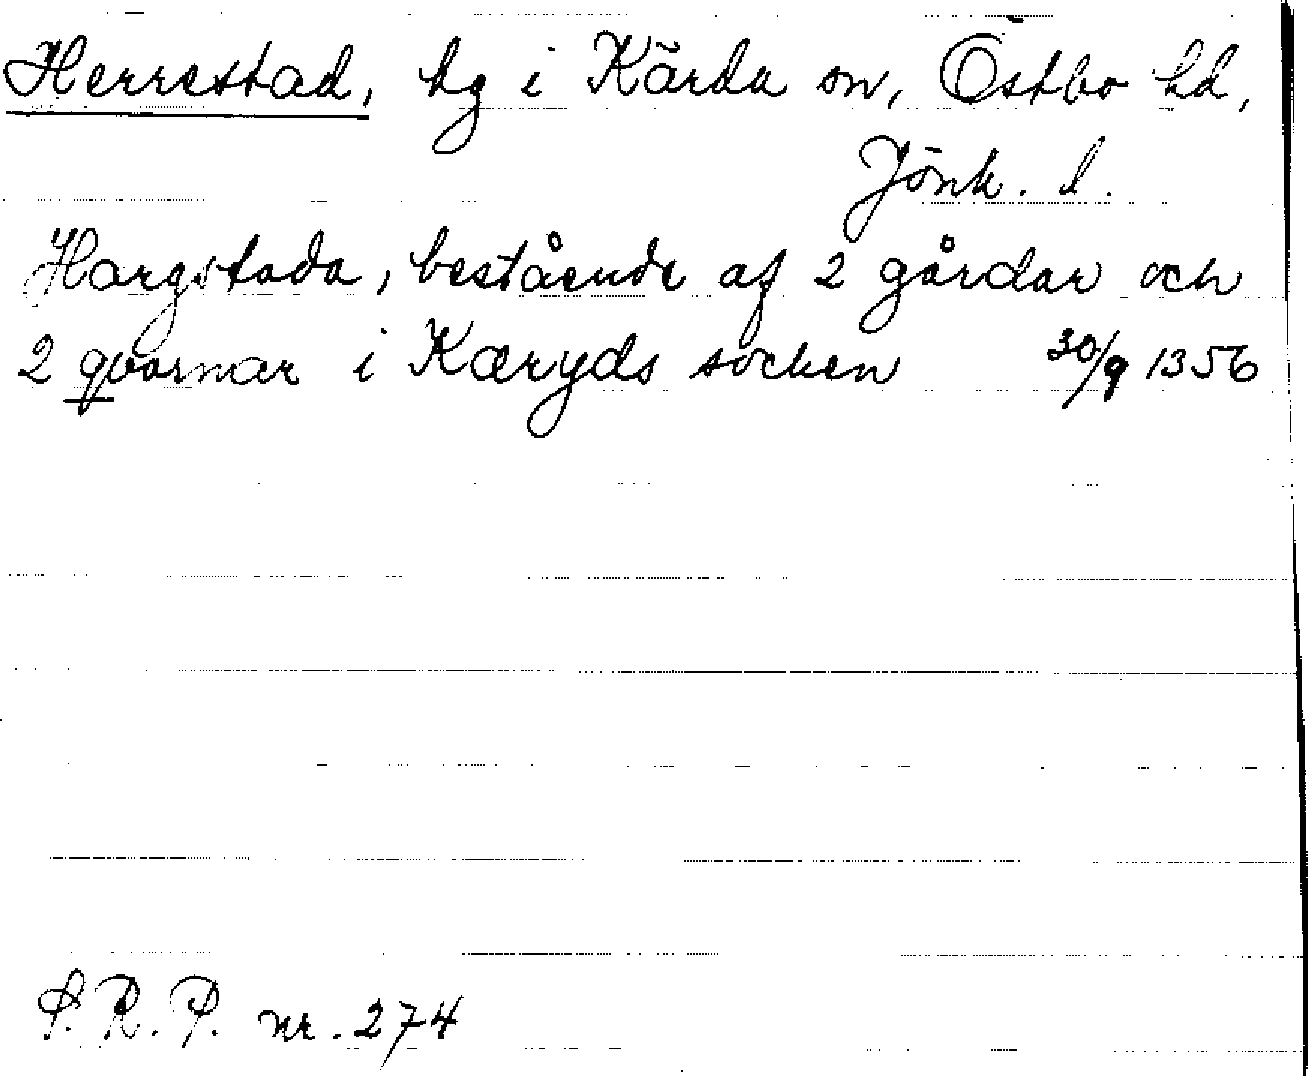 Herrestad, hg i Kärda sn, Östbo hd,
Jönk. l.
Hargstada, bestående af 2 gårdar och
2 qvarnar i Kæryds socken 30/9 1356
S.R.P. nr. 274